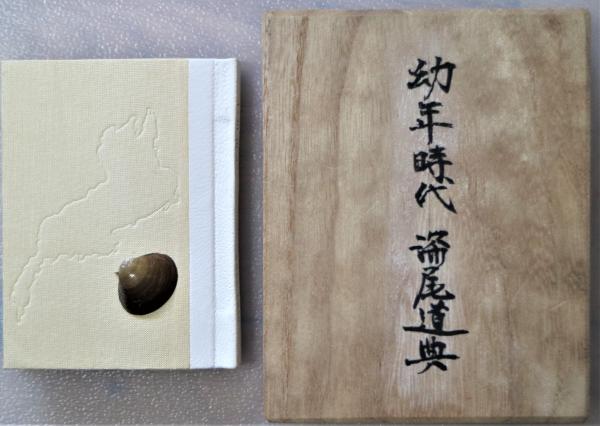 幼年時代 尾道典